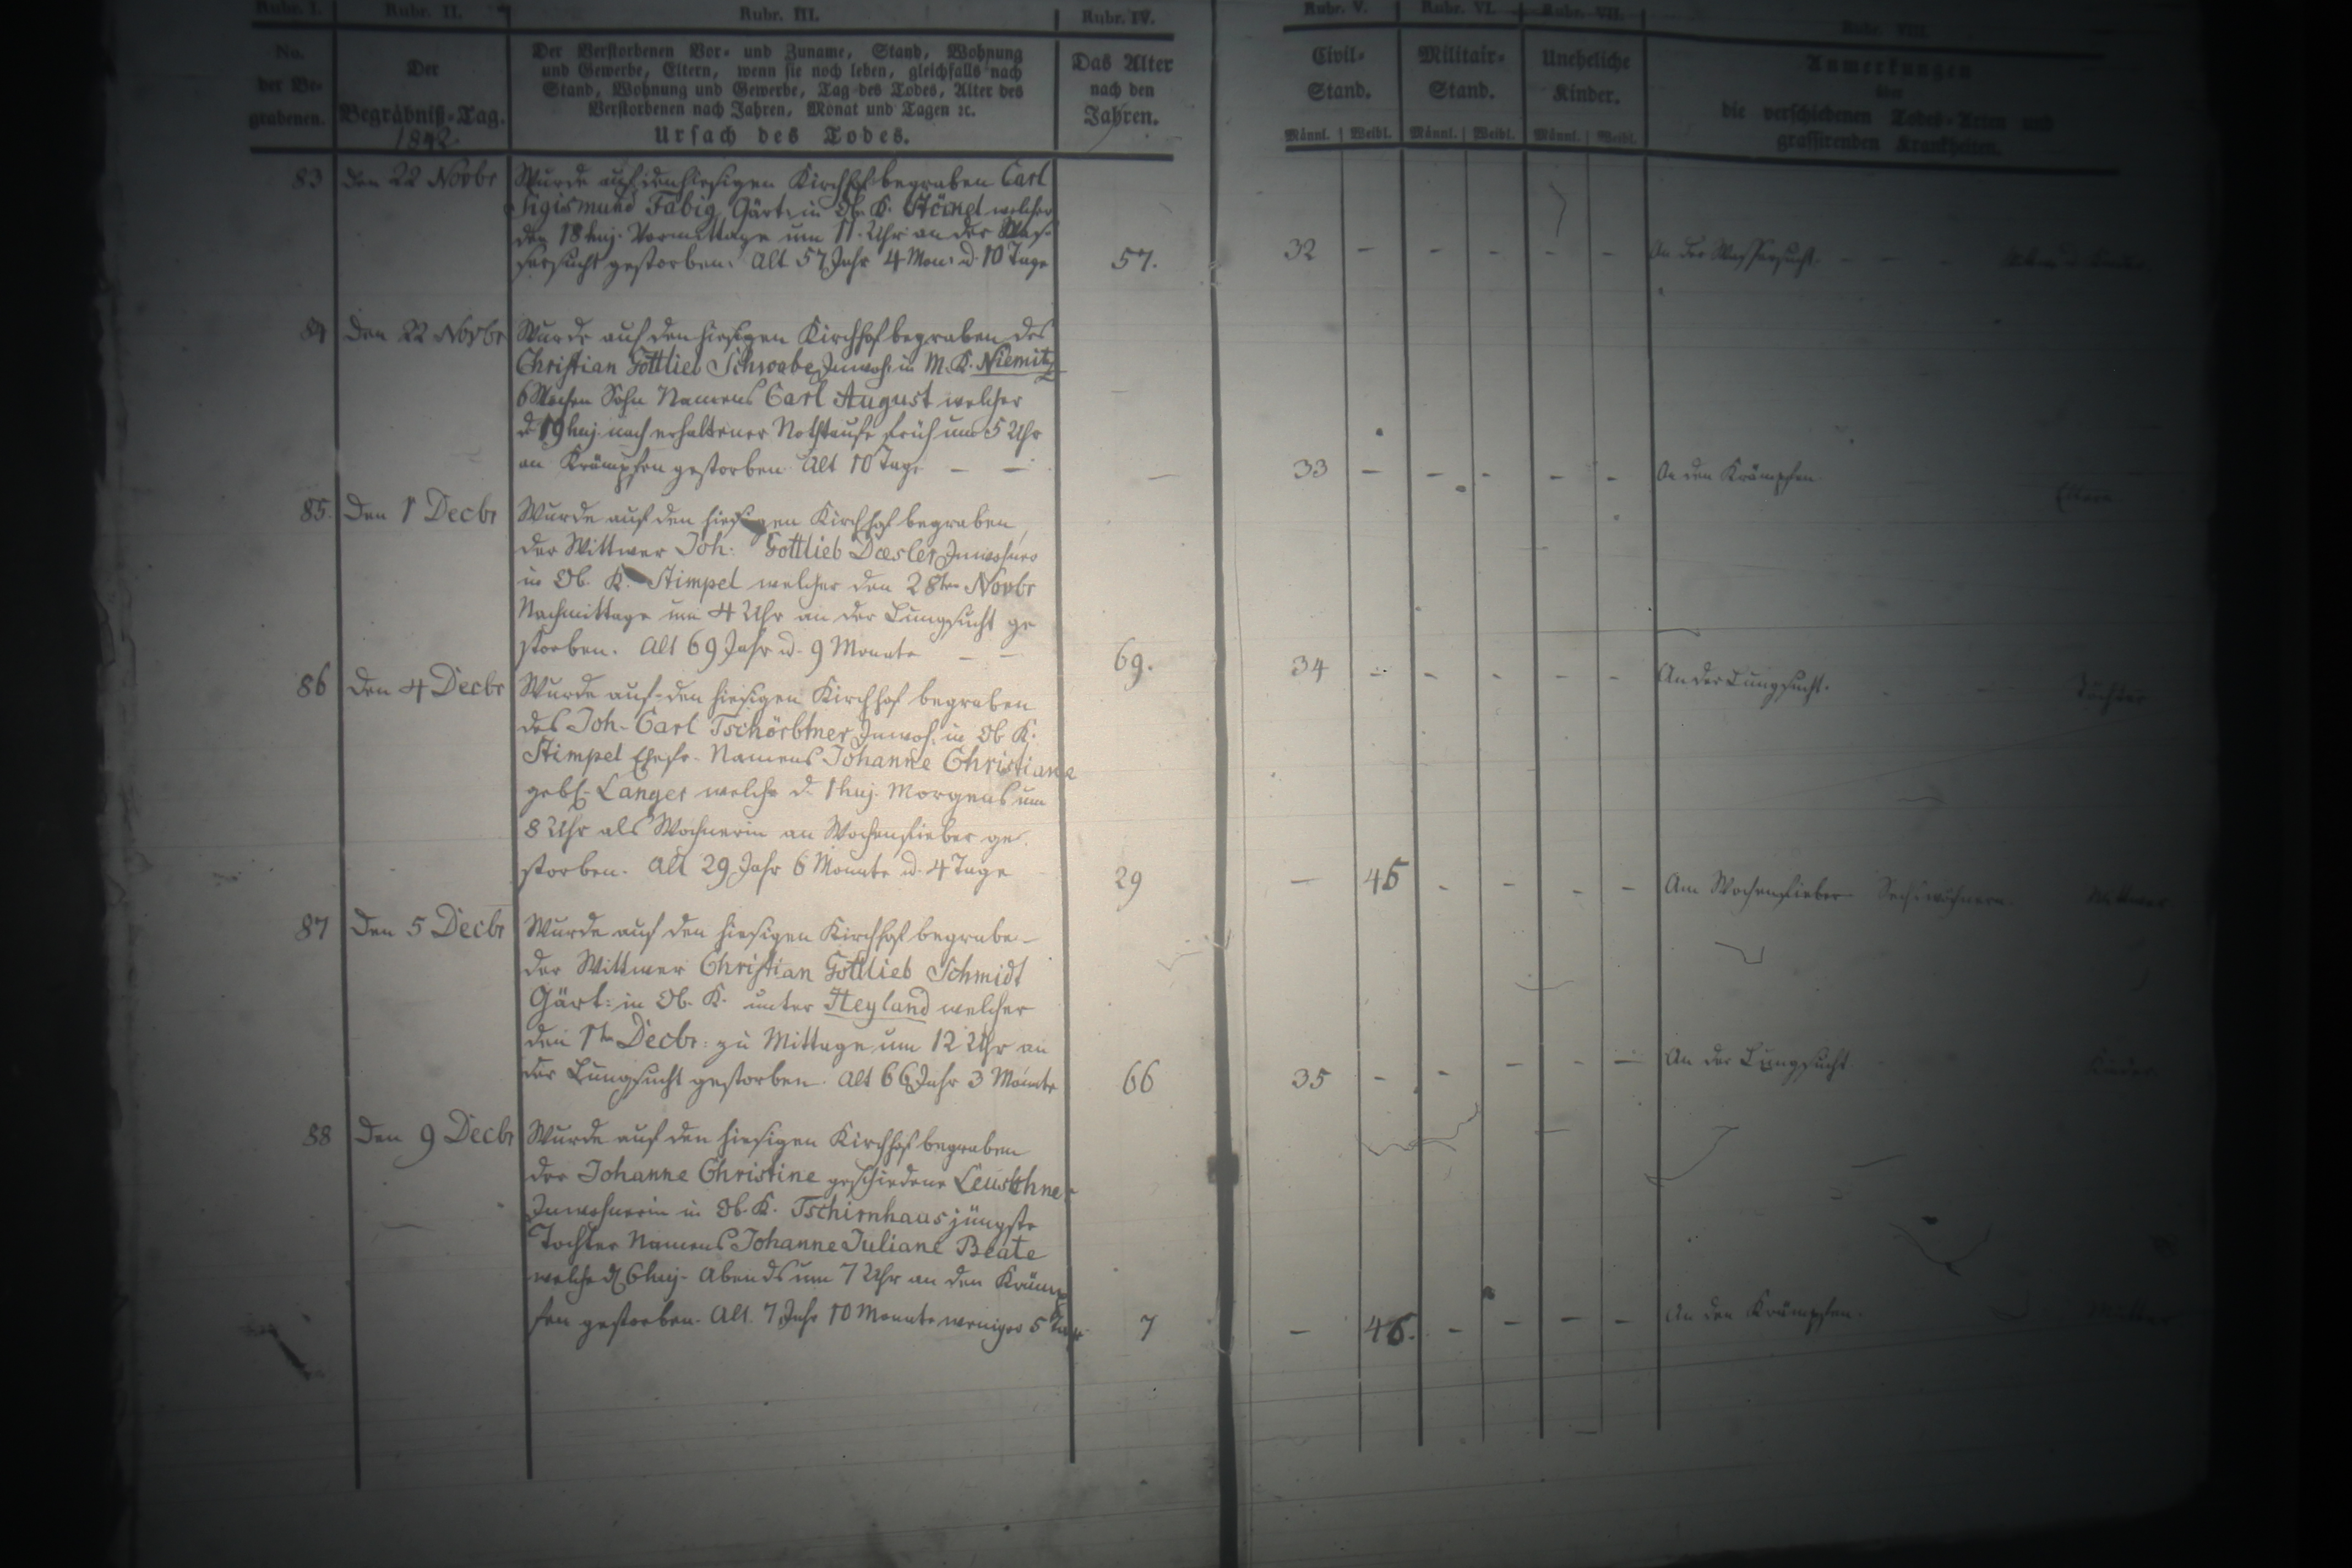 Rubr. I. Rubr. II. Rubr. III. Rubr. IV. Rubr. V. Rubr. VI. Rubr. VII. Rubr. VIII.
No. der Be- grabenen.
Der Begräbniß-Tag. 1842.
Der Verstorbenen Vor- und Zuname, Stand, Wohnung
und Gewerbe, Eltern, wenn sie noch leben, gleichfalls nach
Stand, Wohnung und Gewerbe, Tag des Todes, Alter des
Verstorbenen nach Jahren, Monat und Tagen ꝛc.
Ursach des Todes.
Das Alter nach den Jahren.
Civil-Stand.
Militair-Stand.
Uneheliche Kinder.
Männl. Weibl. Männl. Weibl. Männl. Weibl.
Anmerkungen
über
die verschiedenen Todes-Arten und
grassirenden Krankheiten.
83 den 22 Novbr Wurde auf den hiesigen Kirchhof begraben Carl
Sigismund Fabig, Gärt. in Ob. K. welcher
den 18 huj. Vormittage um 11. Uhr an der Was-
sersucht gestorben. Alt 57 Jahr 4 Mon: u. 10 Tage 57. 32 - - - - - An der Wassersucht. - - -
84 den 22 Novbr Wurde auf den hiesigen Kirchhof begraben des
Christian Gottlieb Schwabe Inwoh: in M. K. Niemitz
6 Sohn Namens Carl August welcher
d. 19 huj. nach erhaltener Nothtaufe früh um 5 Uhr
an Krämpfen gestorben. Alt 10 Tage - - - 33 - - - - - An den Krämpfen Eltern
85. Den 1 Decbr Wurde auf den hiesigen Kirchhof begraben
der Wittwer Joh: Gottlieb Daesler Inwohner
in Ob. K. Stimpel welcher den 28ten Novbr
Nachmittage um 4 Uhr an der Lungsucht ge
storben. Alt 69 Jahr u. 9 Monate - - 69. 34 - - - - - An der Lungsucht. Töchter
86 den 4 Decbr Wurde auf den hiesigen Kirchhof begraben
des Joh. Carl Tschörtner Inwoh. in Ob K.
Stimpel Ehefr. Namens Johanne Christiane
gebh. Langer welche d. 1 huj. Morgens um
8 Uhr als Wöchnerin an Wochenfieber ge.
storben. Alt 29 Jahr 6 Monate u. 4 Tage 29 - 45 - - - - Am Wochenfieber Sechswöchnerin. Wittwer
87 Den 5 Decbr Wurde auf den hiesigen Kirchhof begrabe-
der Wittwer Christian Gottlieb Schmidt
Gärt: in Ob. K. unter Heyland welcher
den 1ten Decbr: zu Mittage um 12 Uhr an
der Lungsucht gestorben. Alt 66 Jahr 3 Monate 66 35 - - - - - An der Lungsucht Kinder
88 Den 9 Decbr Wurde auf den hiesigen Kirchhof begraben
der Johanne Christine geschiedene Leuschner
Inwohnerin in Ob. K. Tschirnhaus jüngste
Tochter Namens Johanne Juliane Beate
welche d. 6 huj. Abends um 7 Uhr an den Kräm
fen gestorben. Alt. 7 Jahr 10 Monate weniger 5 Tage 7 - 46. - - - - An den Krämpfen. Mutter